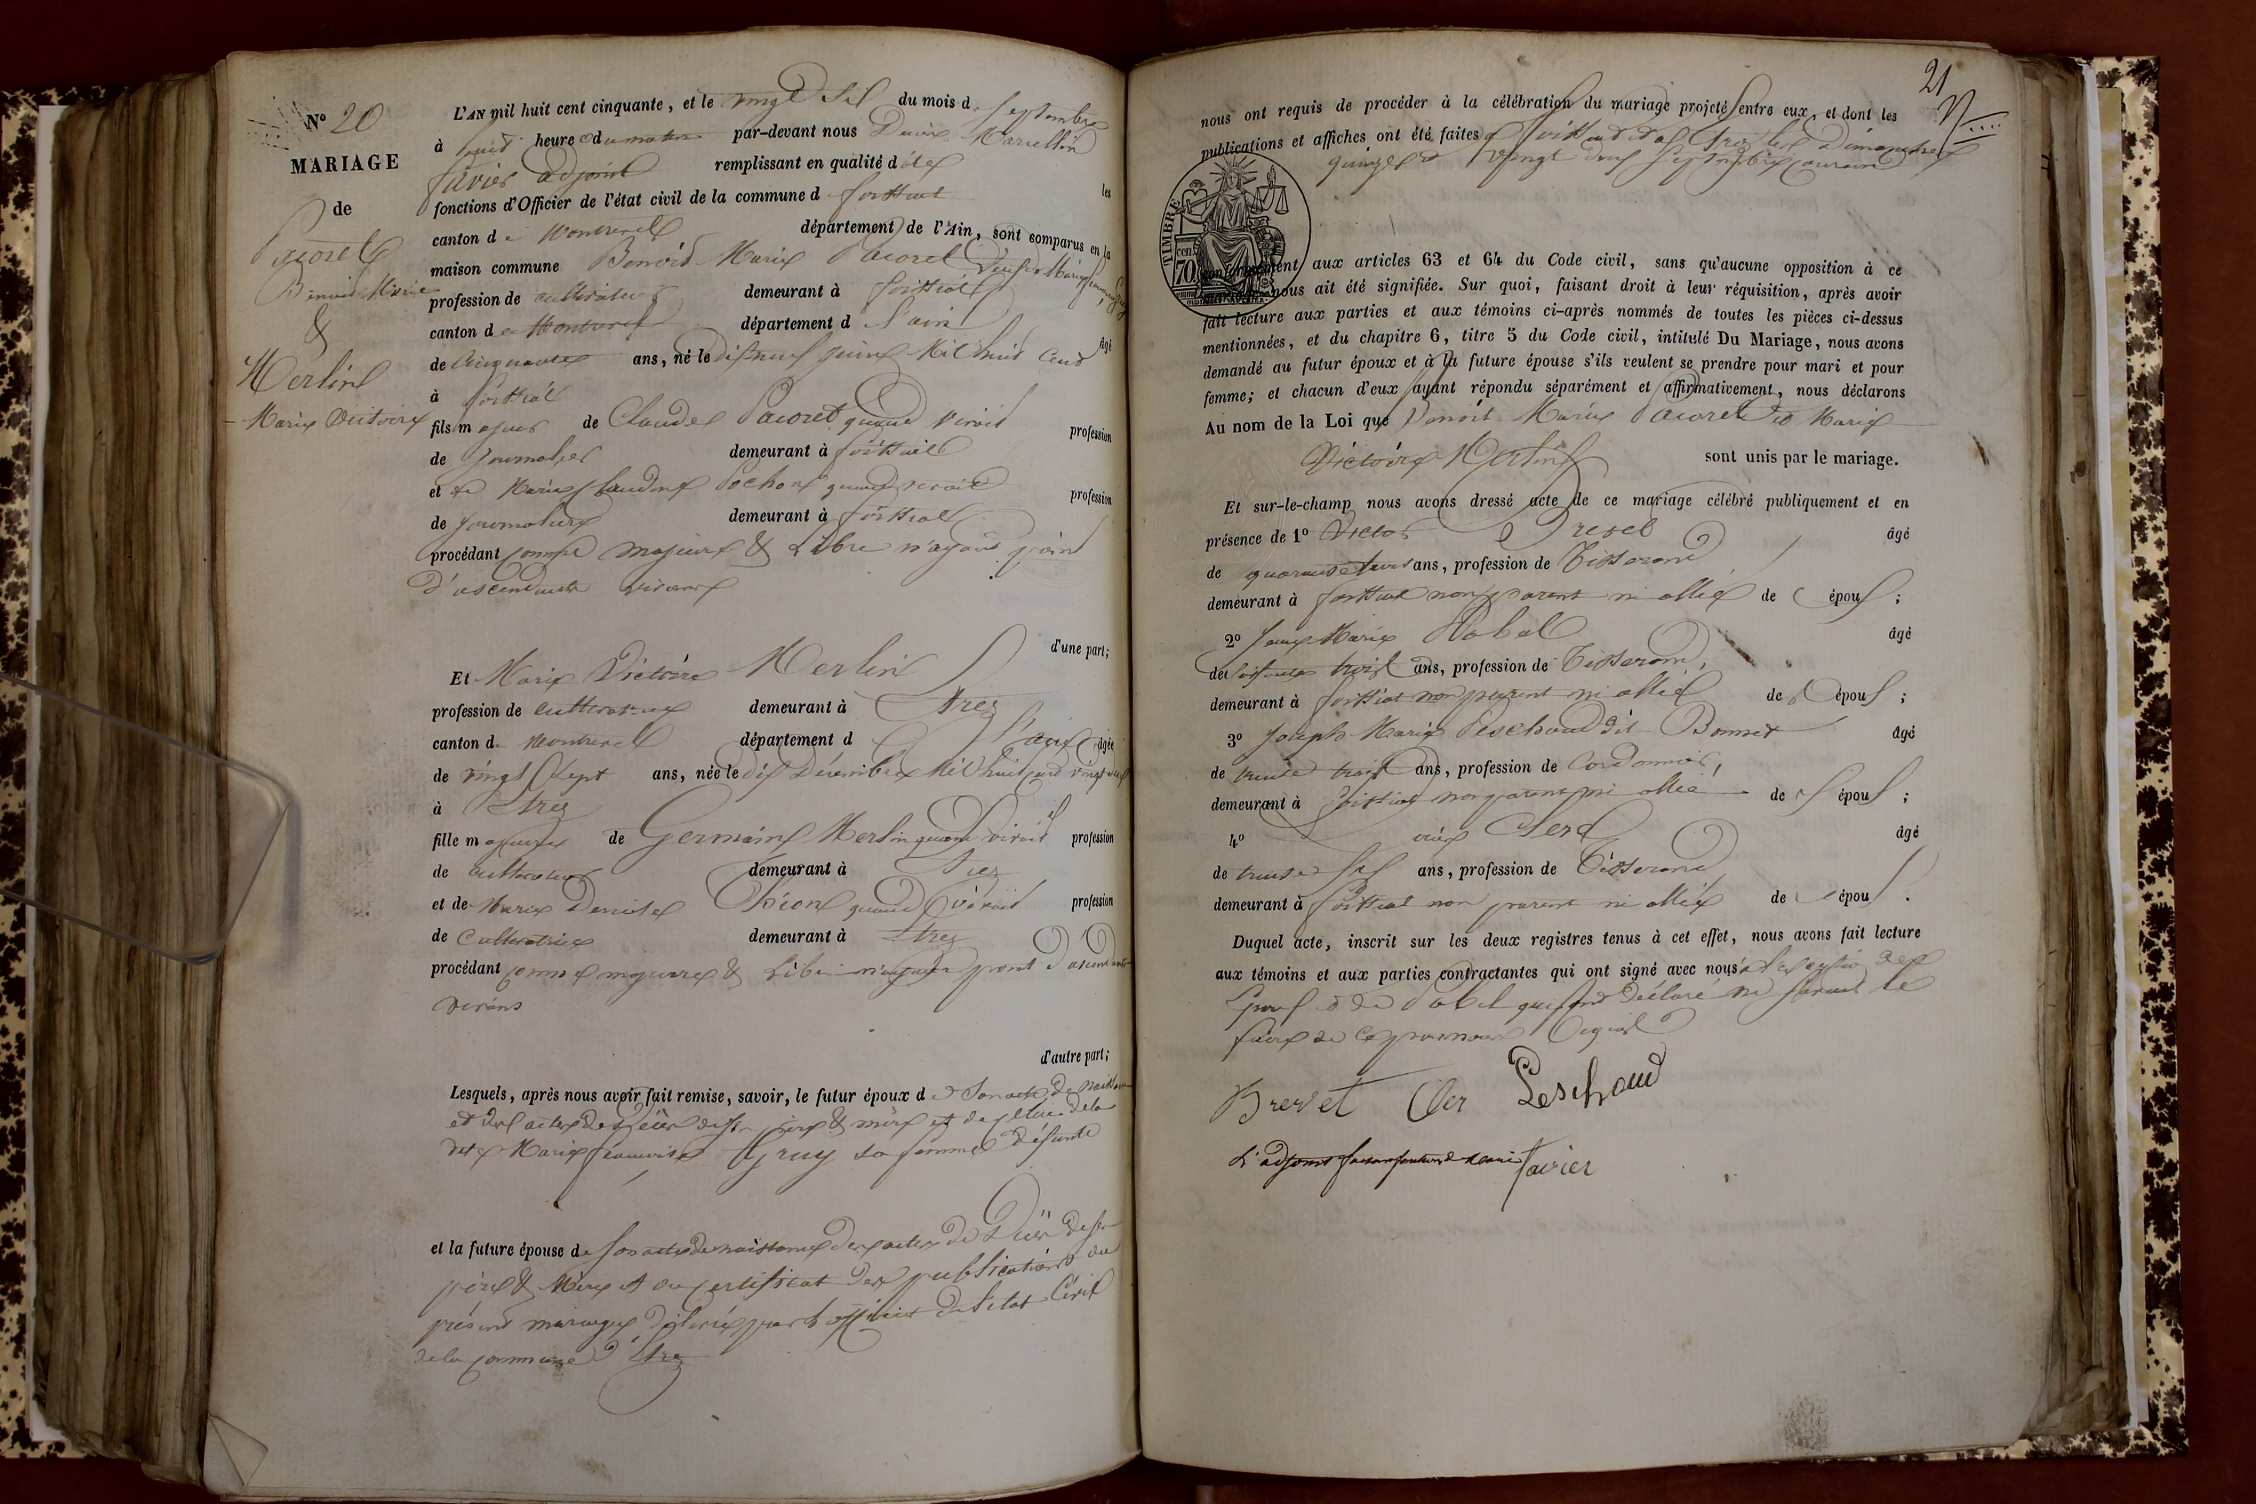 N° 20
MARIAGE
de
Pacoret
Benoit Marie
&
Merlin
Marie Victoire
L'AN mil huit cent cinquante, et le vingt six du mois de septembre
à huit heure du matin par-devant nous Denis Marcellin
favier adjoint remplissant en qualité de
fonctions d'Officier de l'état civil de la commune d foissiat les
canton de Montrevel département de l'Ain, sont comparus en la
maison commune Benoit Marie Pacoret veuf de Marie françoise Gruy
profession de cultivateur demeurant à foissiat
canton de Montrevel département d l'ain âgé
de cinquante ans, né le dix neuf juin Mil huit cent
à foissiat
fils majeur de Claude Pacoret quand vivait profession
de journalier demeurant à foissiat
et de Marie Claudine Pochon quand vivait profession
de journalière demeurant à foissiat
procédant comme majeur & Libre n'ayant point
d'ascendants vivants
d'une part;
Et Marie Victoire Merlin
profession de cultivatrice demeurant à Etrez
canton de Montrevel département d l'ain âgée
de vingt sept ans, née le dix Décembre Mil huit cent vingt deux
à Etrez
fille majeure de Germain Merlin quand vivait profession
de cultivateur demeurant à Etrez
et de Marie Denise quand vivait profession
de Cultivatrice demeurant à Etrez
procédant comme majeure & Libre n'ayant point d'ascendants
vivans
d'autre part;
Lesquels, après nous avoir fait remise, savoir, le futur époux d e Son acte de naissance
et des actes de Décès de ses père & mère et de celui de la
dite Marie françoise Gruy sa femme défunte
et la future épouse de son acte de naissance des actes de Décès de ses
père & Mère et du certificat des publications du
présent mariage délivré par l'officier de l'état Civil
de la commune d'Etrez
21
nous ont requis de procéder à la célébration du mariage projeté entre eux, et dont les
publications et affiches ont été faites à foissiat et à Etrez les Dimanches
quinze et vingt deux septembre courant
TIMBRE
70
conformément aux articles 63 et 64 du Code civil, sans qu'aucune opposition à ce
mariage nous ait été signifiée. Sur quoi, faisant droit à leur réquisition, après avoir
fait lecture aux parties et aux témoins ci-après nommés de toutes les pièces ci-dessus
mentionnées, et du chapitre 6, titre 5 du Code civil, intitulé Du Mariage, nous avons
demandé au futur époux et à la future épouse s'ils veulent se prendre pour mari et pour
femme; et chacun d'eux ayant répondu séparément et affirmativement, nous déclarons
Au nom de la Loi que Benoit Marie Pacoret et Marie
Victoire Merlin sont unis par le mariage.
Et sur-le-champ nous avons dressé acte de ce mariage célébré publiquement et en
présence de 1° Victor Brevet âgé
de quarante ans, profession de Tisserand
demeurant à foissiat non parent ni allié de s époux;
2° Jean Marie Pobel âgé
de soixante trois ans, profession de Tisserand,
demeurant à foissiat non parent ni allié de s époux;
3° Joseph Marie Peschoud dit Bonnet âgé
de trente trois ans, profession de Cordonnier,
demeurant à foissiat non parent ni allié de s époux;
4° Clerc âgé
de trente six ans, profession de Tisserand
demeurant à foissiat non parent ni allié de s époux.
Duquel acte, inscrit sur les deux registres tenus à cet effet, nous avons fait lecture
aux témoins et aux parties contractantes qui ont signé avec nous à l'exception des
Epoux & de Pobel qui ont déclaré ne savoir le
faire de ce par nous Requis
Brevet Cler Peschoud
L'adjoint faisant fonction de Maire favier